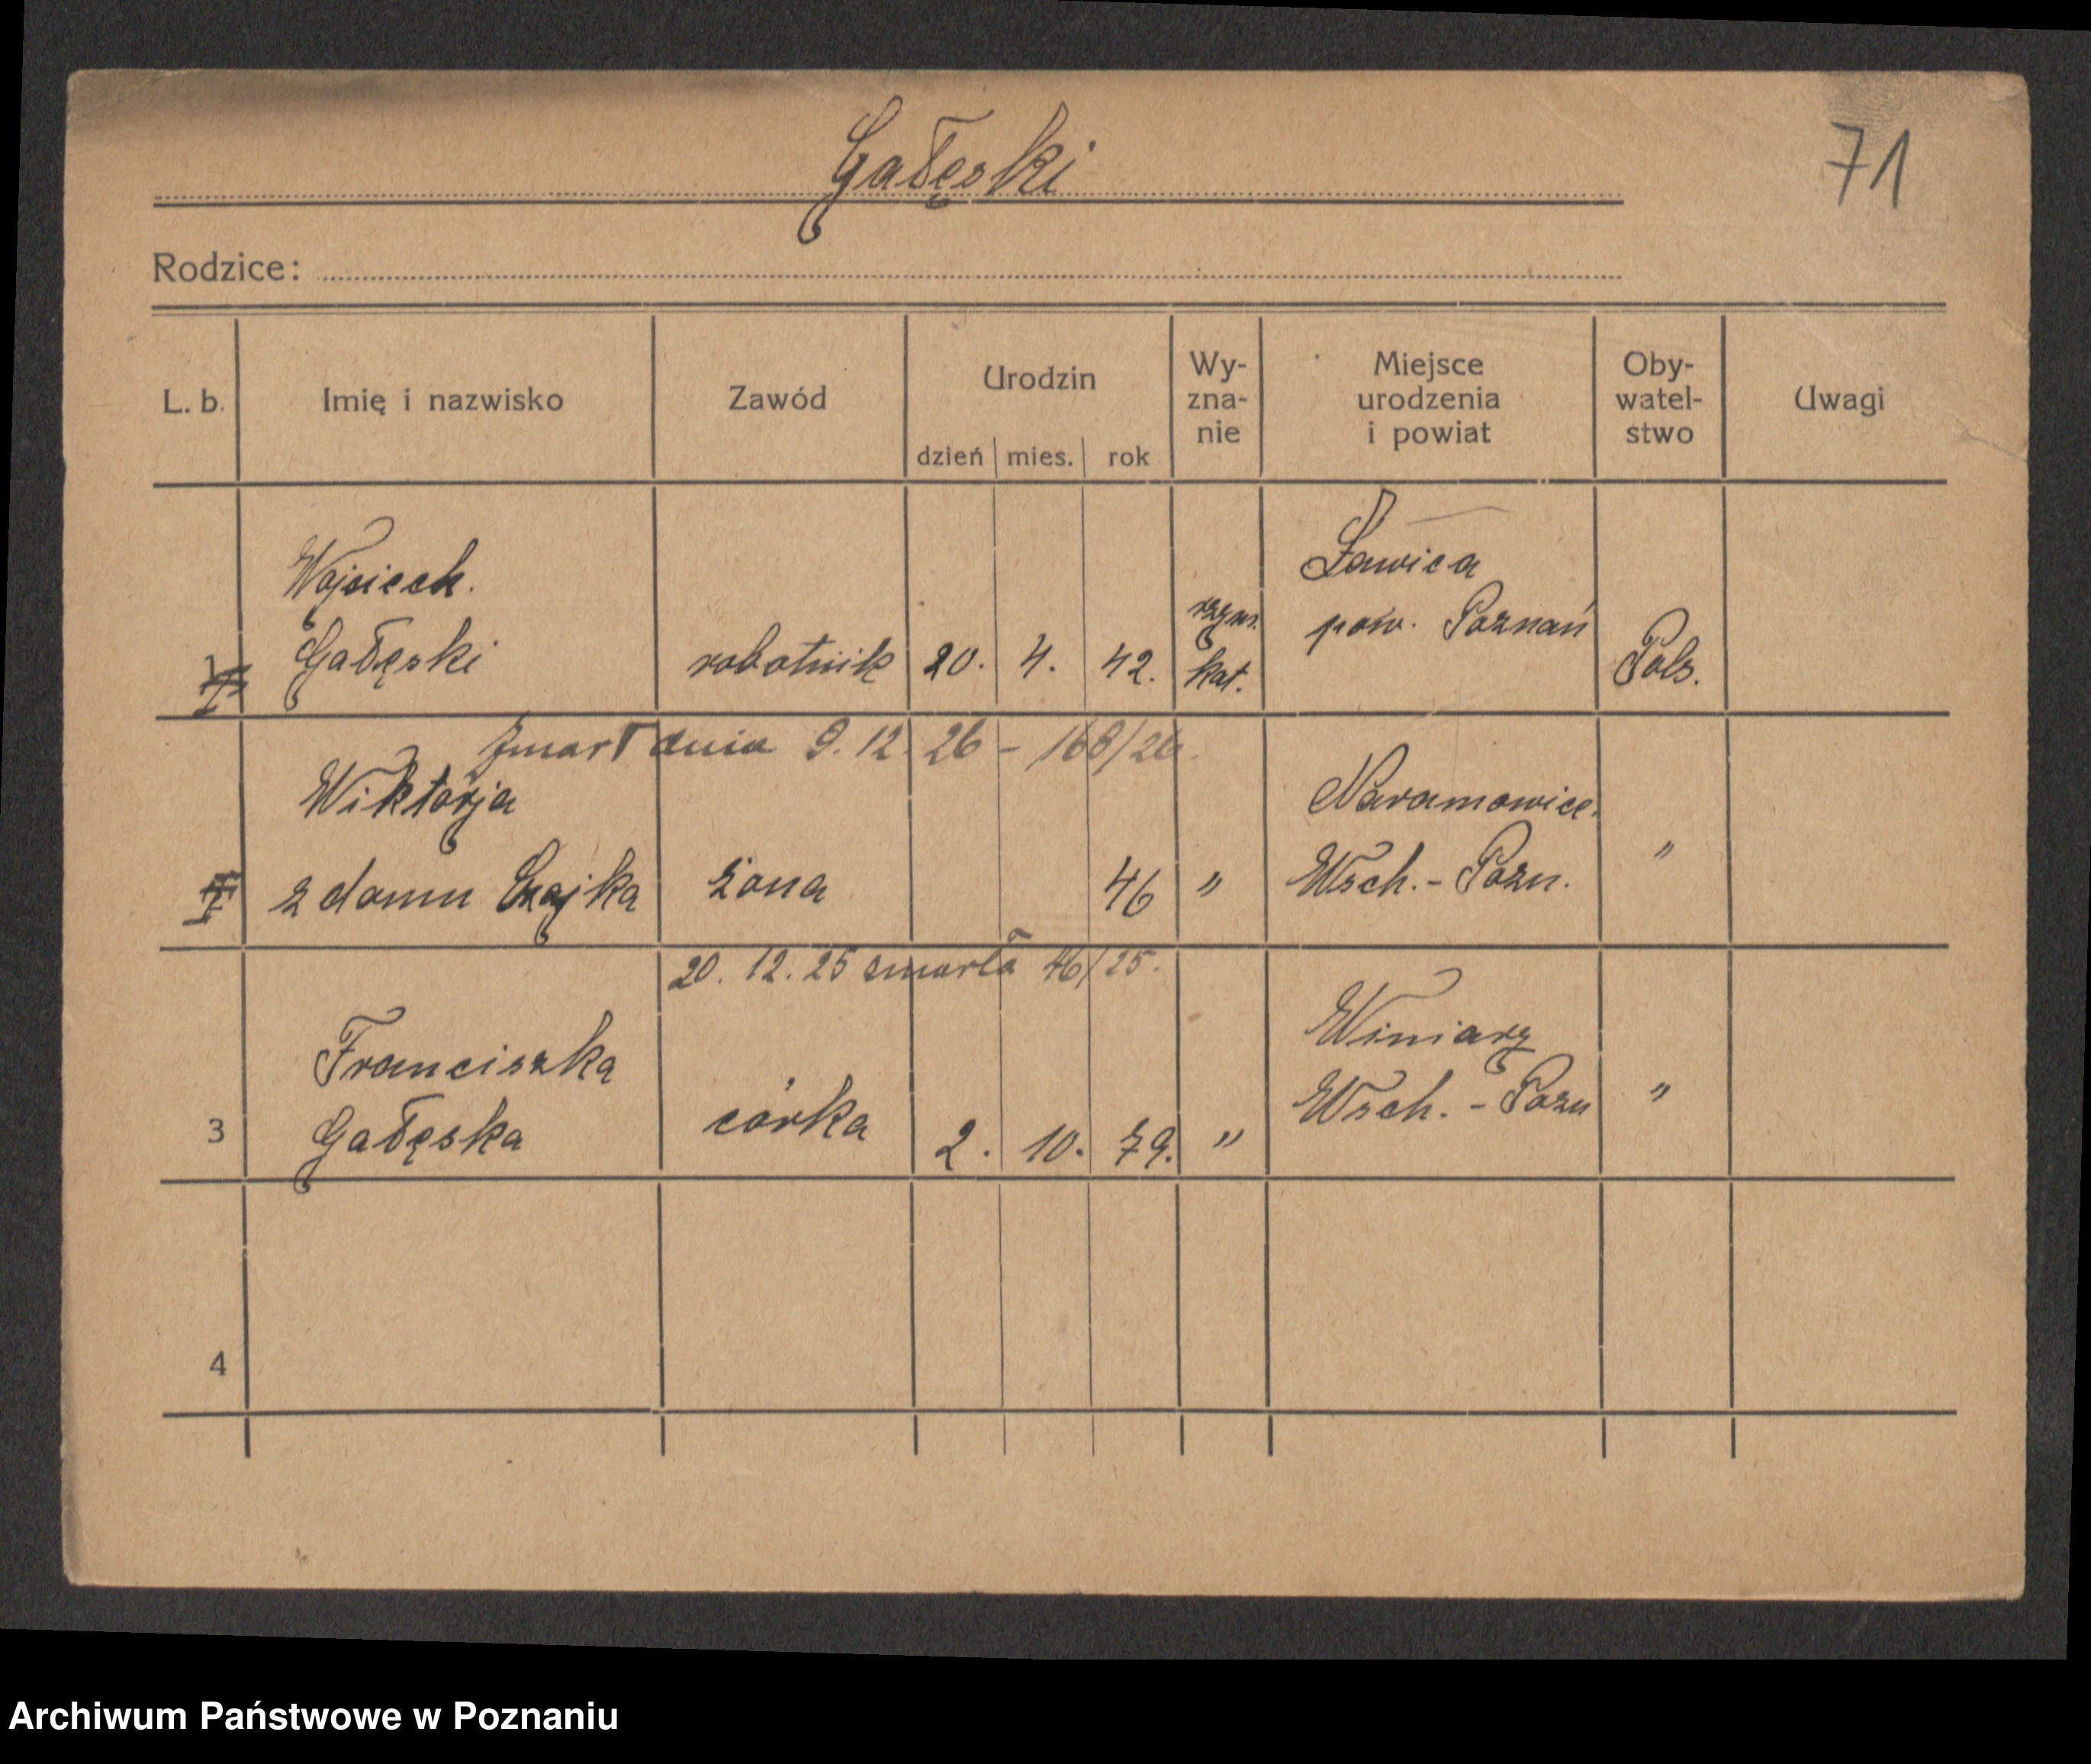 Gałęski
71
Rodzice:
L. b. Imię i nazwisko Zawód Urodzin dzień mies. rok Wy-zna-nie Miejsce urodzenia i powiat Oby-watel-stwo Uwagi
Wojciech
Gałęski robotnik 20. 4. 42. rzym. kat. Ławica pow. Poznań Pols.
Zmarł dnia 9. 12. 26 - 168/26.
Wiktorja
z domu Czajka żona 46 " Naramowice. Wsch.-Pozn. "
20. 12. 25 zmarła 46/25.
Franciszka
3 Gałęska córka 2. 10. 79. " Winiary Wsch.-Pozn "
4
Archiwum Państwowe w Poznaniu